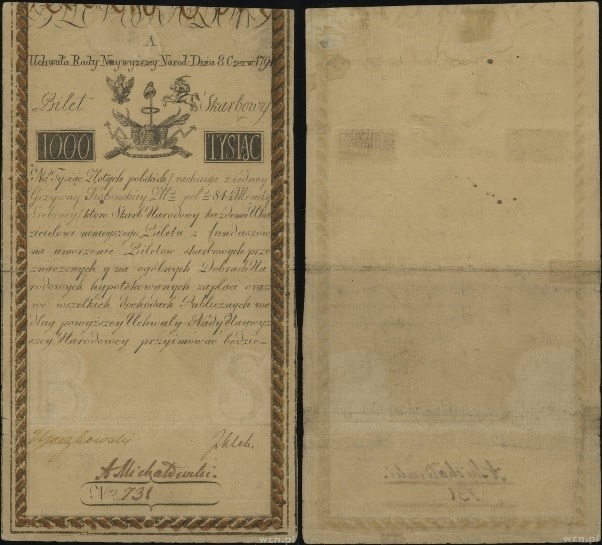 A
Uchwała Rady Naywyzszey Narod: Dnia 8 Czerw: 179
Bilet Skarbowy
1000 TYSIĄC
Na Tysiąc Złotych polskich rachuiąc z iedney
Grzywny Kolonskiey Zł: pol: 84½ Monety
Srebrney, które Skarb Narodowy każdemu Oka
zicielowi ninieyszego Biletu z funduszow
na umorzenie Biletow skarbowych prze
znaczonych y na ogolnych Dobrach Na
rodowych hypotekowanych zapłaci oraz
we wszelkich dochodach Publicznych we
dług powyzszey Uchwały Rady Naywyz
szey Narodowey przyimować będzie
B S
A Michałowski.
No 731
wcn.pl
wcn.pl